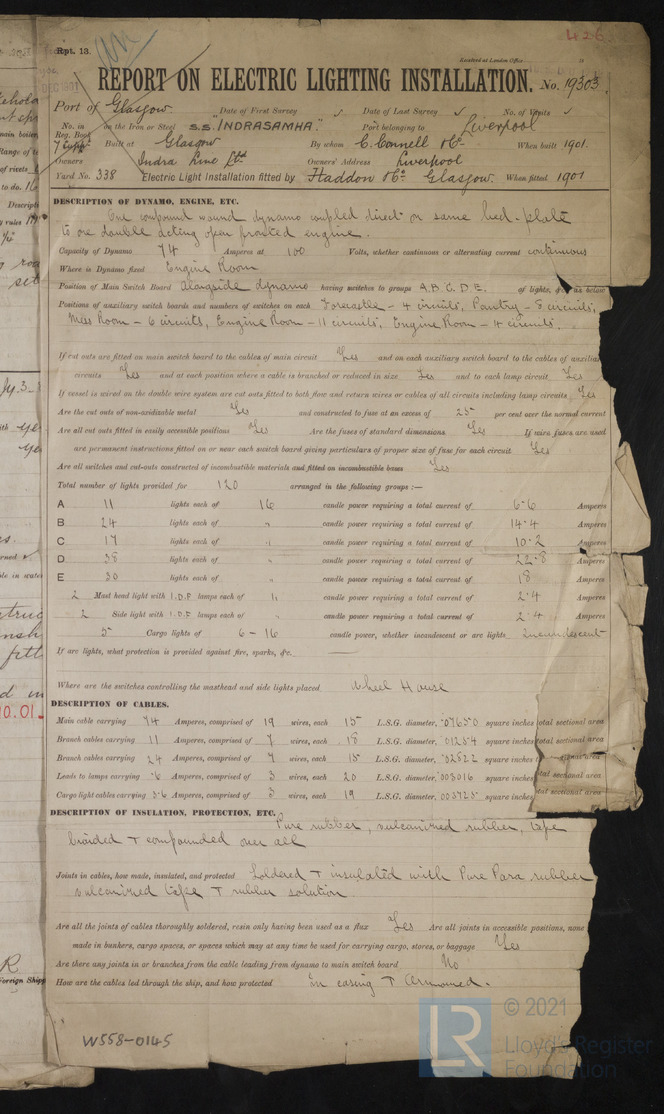 426
Rpt. 13.
Received at London Office
REPORT ON ELECTRIC LIGHTING INSTALLATION. No. 19303
Port of Glasgow Date of First Survey ✓ Date of Last Survey ✓ No. of Visits ✓
No. in Reg. Book on the Iron or Steel S.S. "INDRASAMHA." Port belonging to Liverpool
Built at Glasgow By whom C. Connell & Co. When built 1901.
Owners Indra Line Ltd Owners' Address Liverpool
Yard No. 338 Electric Light Installation fitted by Haddon & Co. Glasgow. When fitted 1901
DESCRIPTION OF DYNAMO, ENGINE, ETC.
One compound wound dynamo coupled direct on same bed-plate
to one double acting open fronted engine.
Capacity of Dynamo 74 Amperes at 100 Volts, whether continuous or alternating current continuous
Where is Dynamo fixed Engine Room
Position of Main Switch Board alongside dynamo having switches to groups A.B.C.D.E. of lights, &c. as below
Positions of auxiliary switch boards and numbers of switches on each Forecastle - 4 circuits, Pantry - 8 circuits,
Mess Room - 6 circuits, Engine Room - 11 circuits, Engine Room - 4 circuits.
If cut outs are fitted on main switch board to the cables of main circuit Yes and on each auxiliary switch board to the cables of auxiliar
circuits Yes and at each position where a cable is branched or reduced in size Yes and to each lamp circuit Yes
If vessel is wired on the double wire system are cut outs fitted to both flow and return wires or cables of all circuits including lamp circuits Yes
Are the cut outs of non-oxidizable metal Yes and constructed to fuse at an excess of 25 per cent over the normal current
Are all cut outs fitted in easily accessible positions Yes Are the fuses of standard dimensions Yes If wire fuses are used
are permanent instructions fitted on or near each switch board giving particulars of proper size of fuse for each circuit Yes
Are all switches and cut-outs constructed of incombustible materials and fitted on incombustible bases Yes
Total number of lights provided for 120 arranged in the following groups :—
A 11 lights each of 16 candle power requiring a total current of 6.6 Amperes
B 24 lights each of " candle power requiring a total current of 14.4 Amperes
C 17 lights each of " candle power requiring a total current of 10.2 Amperes
D 38 lights each of " candle power requiring a total current of 22.8 Amperes
E 30 lights each of " candle power requiring a total current of 18 Amperes
2 Mast head light with 1.D.F lamps each of " candle power requiring a total current of 2.4 Amperes
2 Side light with 1.D.F lamps each of " candle power requiring a total current of 2.4 Amperes
5 Cargo lights of 6 - 16 candle power, whether incandescent or arc lights Incandescent
If arc lights, what protection is provided against fire, sparks, &c. —
Where are the switches controlling the masthead and side lights placed Wheel House
DESCRIPTION OF CABLES.
Main cable carrying 74 Amperes, comprised of 19 wires, each 15 L.S.G. diameter, .07650 square inches total sectional area
Branch cables carrying 11 Amperes, comprised of 7 wires, each 18 L.S.G. diameter, .01254 square inches total sectional area
Branch cables carrying 24 Amperes, comprised of 7 wires, each 15 L.S.G. diameter, .02822 square inches total sectional area
Leads to lamps carrying .6 Amperes, comprised of 3 wires, each 20 L.S.G. diameter, .003016 square inches total sectional area
Cargo light cables carrying 3.6 Amperes, comprised of 3 wires, each 19 L.S.G. diameter, .003725 square inches total sectional area
DESCRIPTION OF INSULATION, PROTECTION, ETC.
Pure rubber, vulcanized rubber, tape
braided & compounded over all
Joints in cables, how made, insulated, and protected Soldered & insulated with Pure Para rubber
vulcanized tape & rubber solution
Are all the joints of cables thoroughly soldered, resin only having been used as a flux Yes Are all joints in accessible positions, none
made in bunkers, cargo spaces, or spaces which may at any time be used for carrying cargo, stores, or baggage Yes
Are there any joints in or branches from the cable leading from dynamo to main switch board No
How are the cables led through the ship, and how protected In casing & Armoured.
W558-0145
© 2021
LR
Lloyd's Register
Foundation